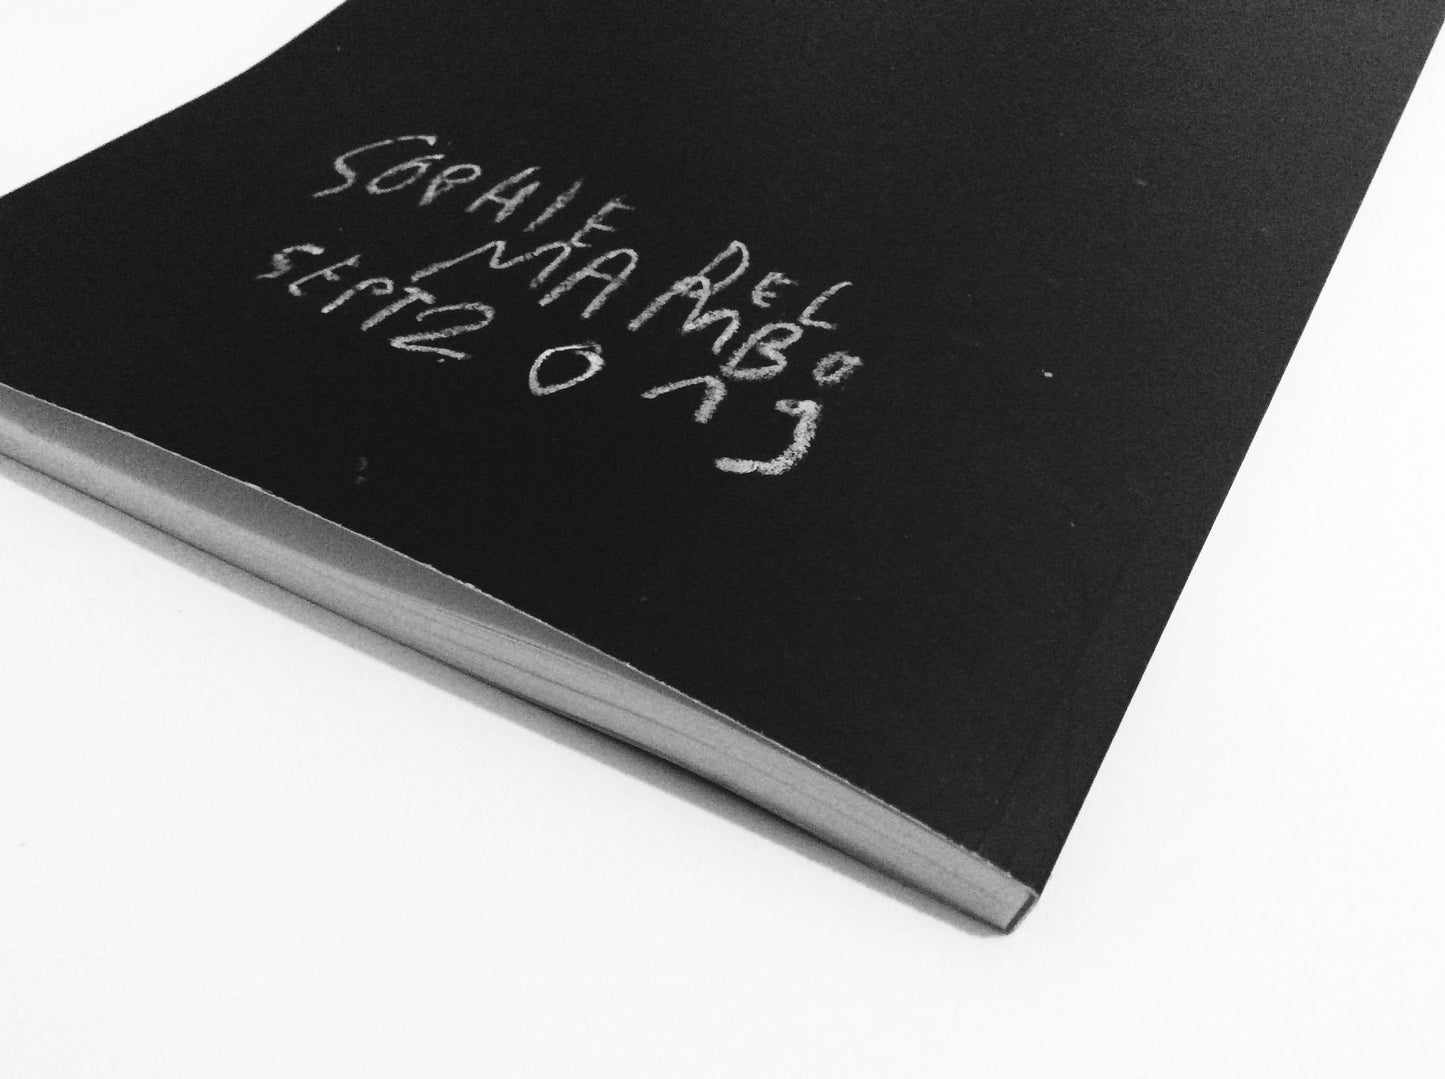 SOPHIE DEL
SEPT 2019